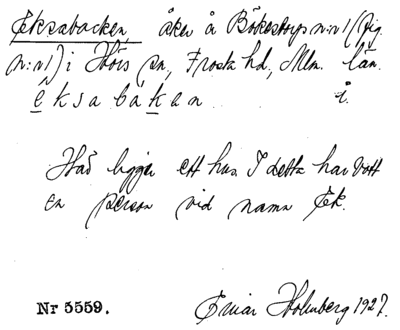 Eksabacken, åker å Bökestorps n:r 1 (fig.
n:r 1) i Hörs sn, Frosta hd, Mlm. län.
e k s a b a k e n i.
Här ligger ett hus. I detta har bott
en person vid namn Ek.
Nr 5559. Einar Holmberg 1927.